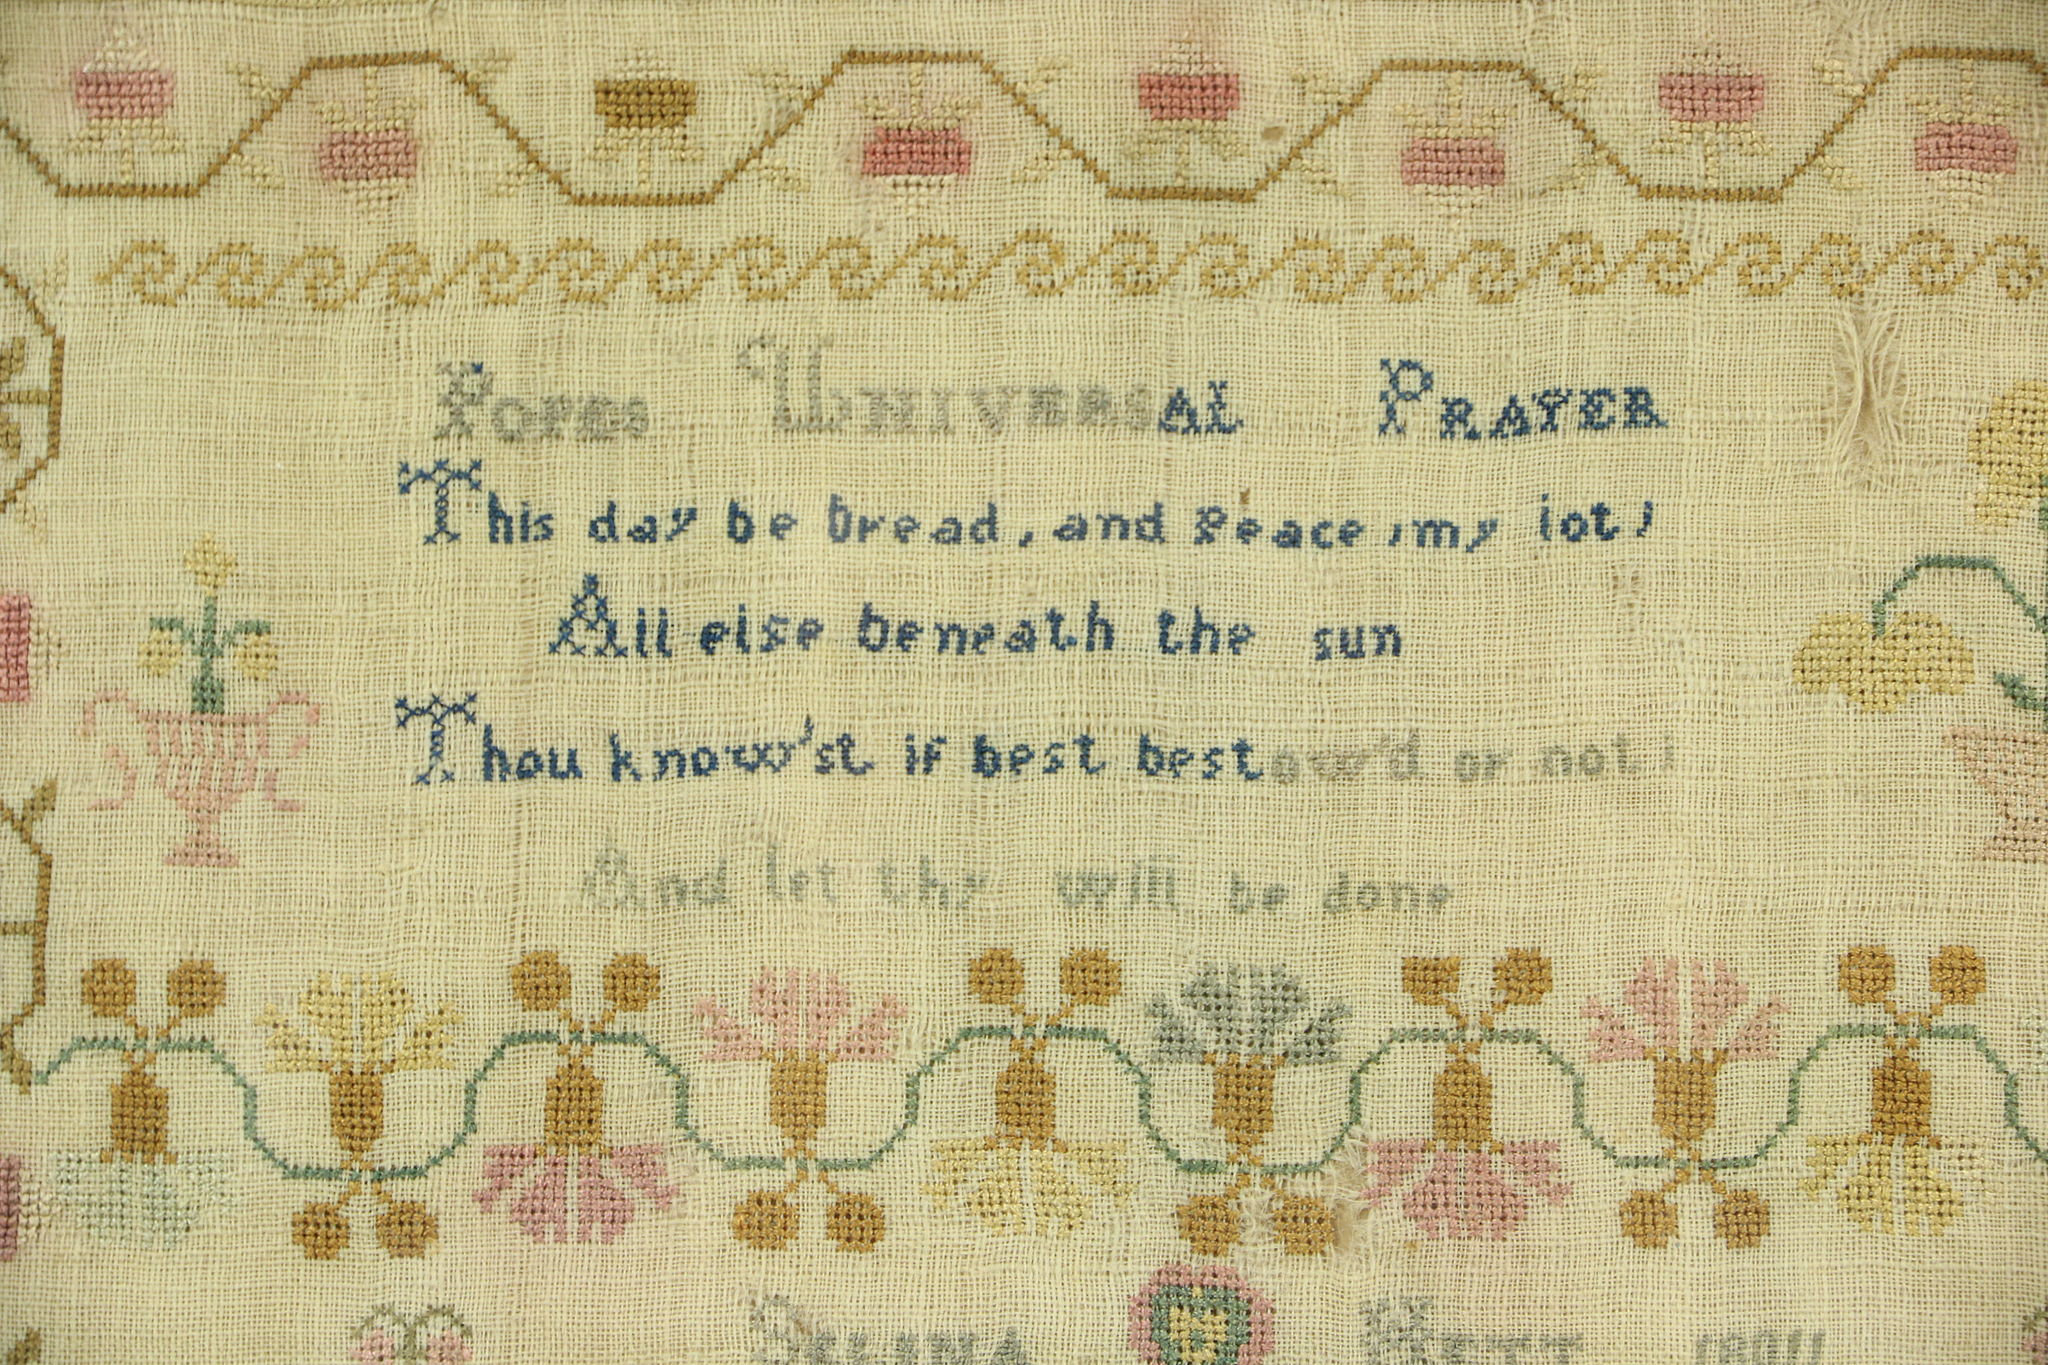 Popes Universal Prayer
This day be bread, and peace, my lot,
All else beneath the sun
Thou know'st if best bestow'd or not;
And let thy will be done
Selina